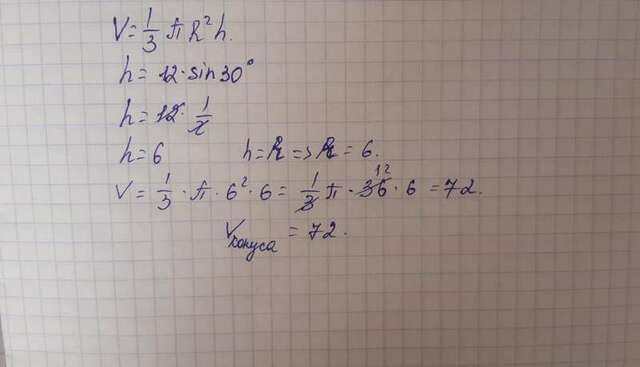 V = 1/3 π R² h.
h = 12 · sin 30°
h = 12 · 1/2
h = 6 h = R => R = 6.
V = 1/3 · π · 6² · 6 = 1/3 π · 36 12 · 6 = 72.
Vконуса = 72.